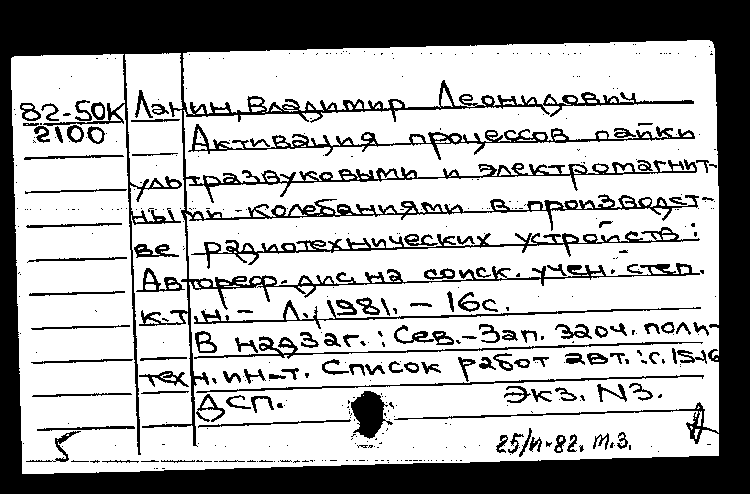 82-50К Ланин, Владимир Леонидович
2100 Активация процессов пайки
ультразвуковыми и электромагнит-
ными колебаниями в производст-
ве радиотехнических устройств:
Автореф. дис. на соиск. учен. степ.
к.т.н. - Л., 1981. - 16с.
В надзаг.: Сев.-Зап. заоч. поли-
техн. ин-т. Список работ авт.: с. 15-16
ДСП. Экз. N3.
5 25/II-82. т.3.